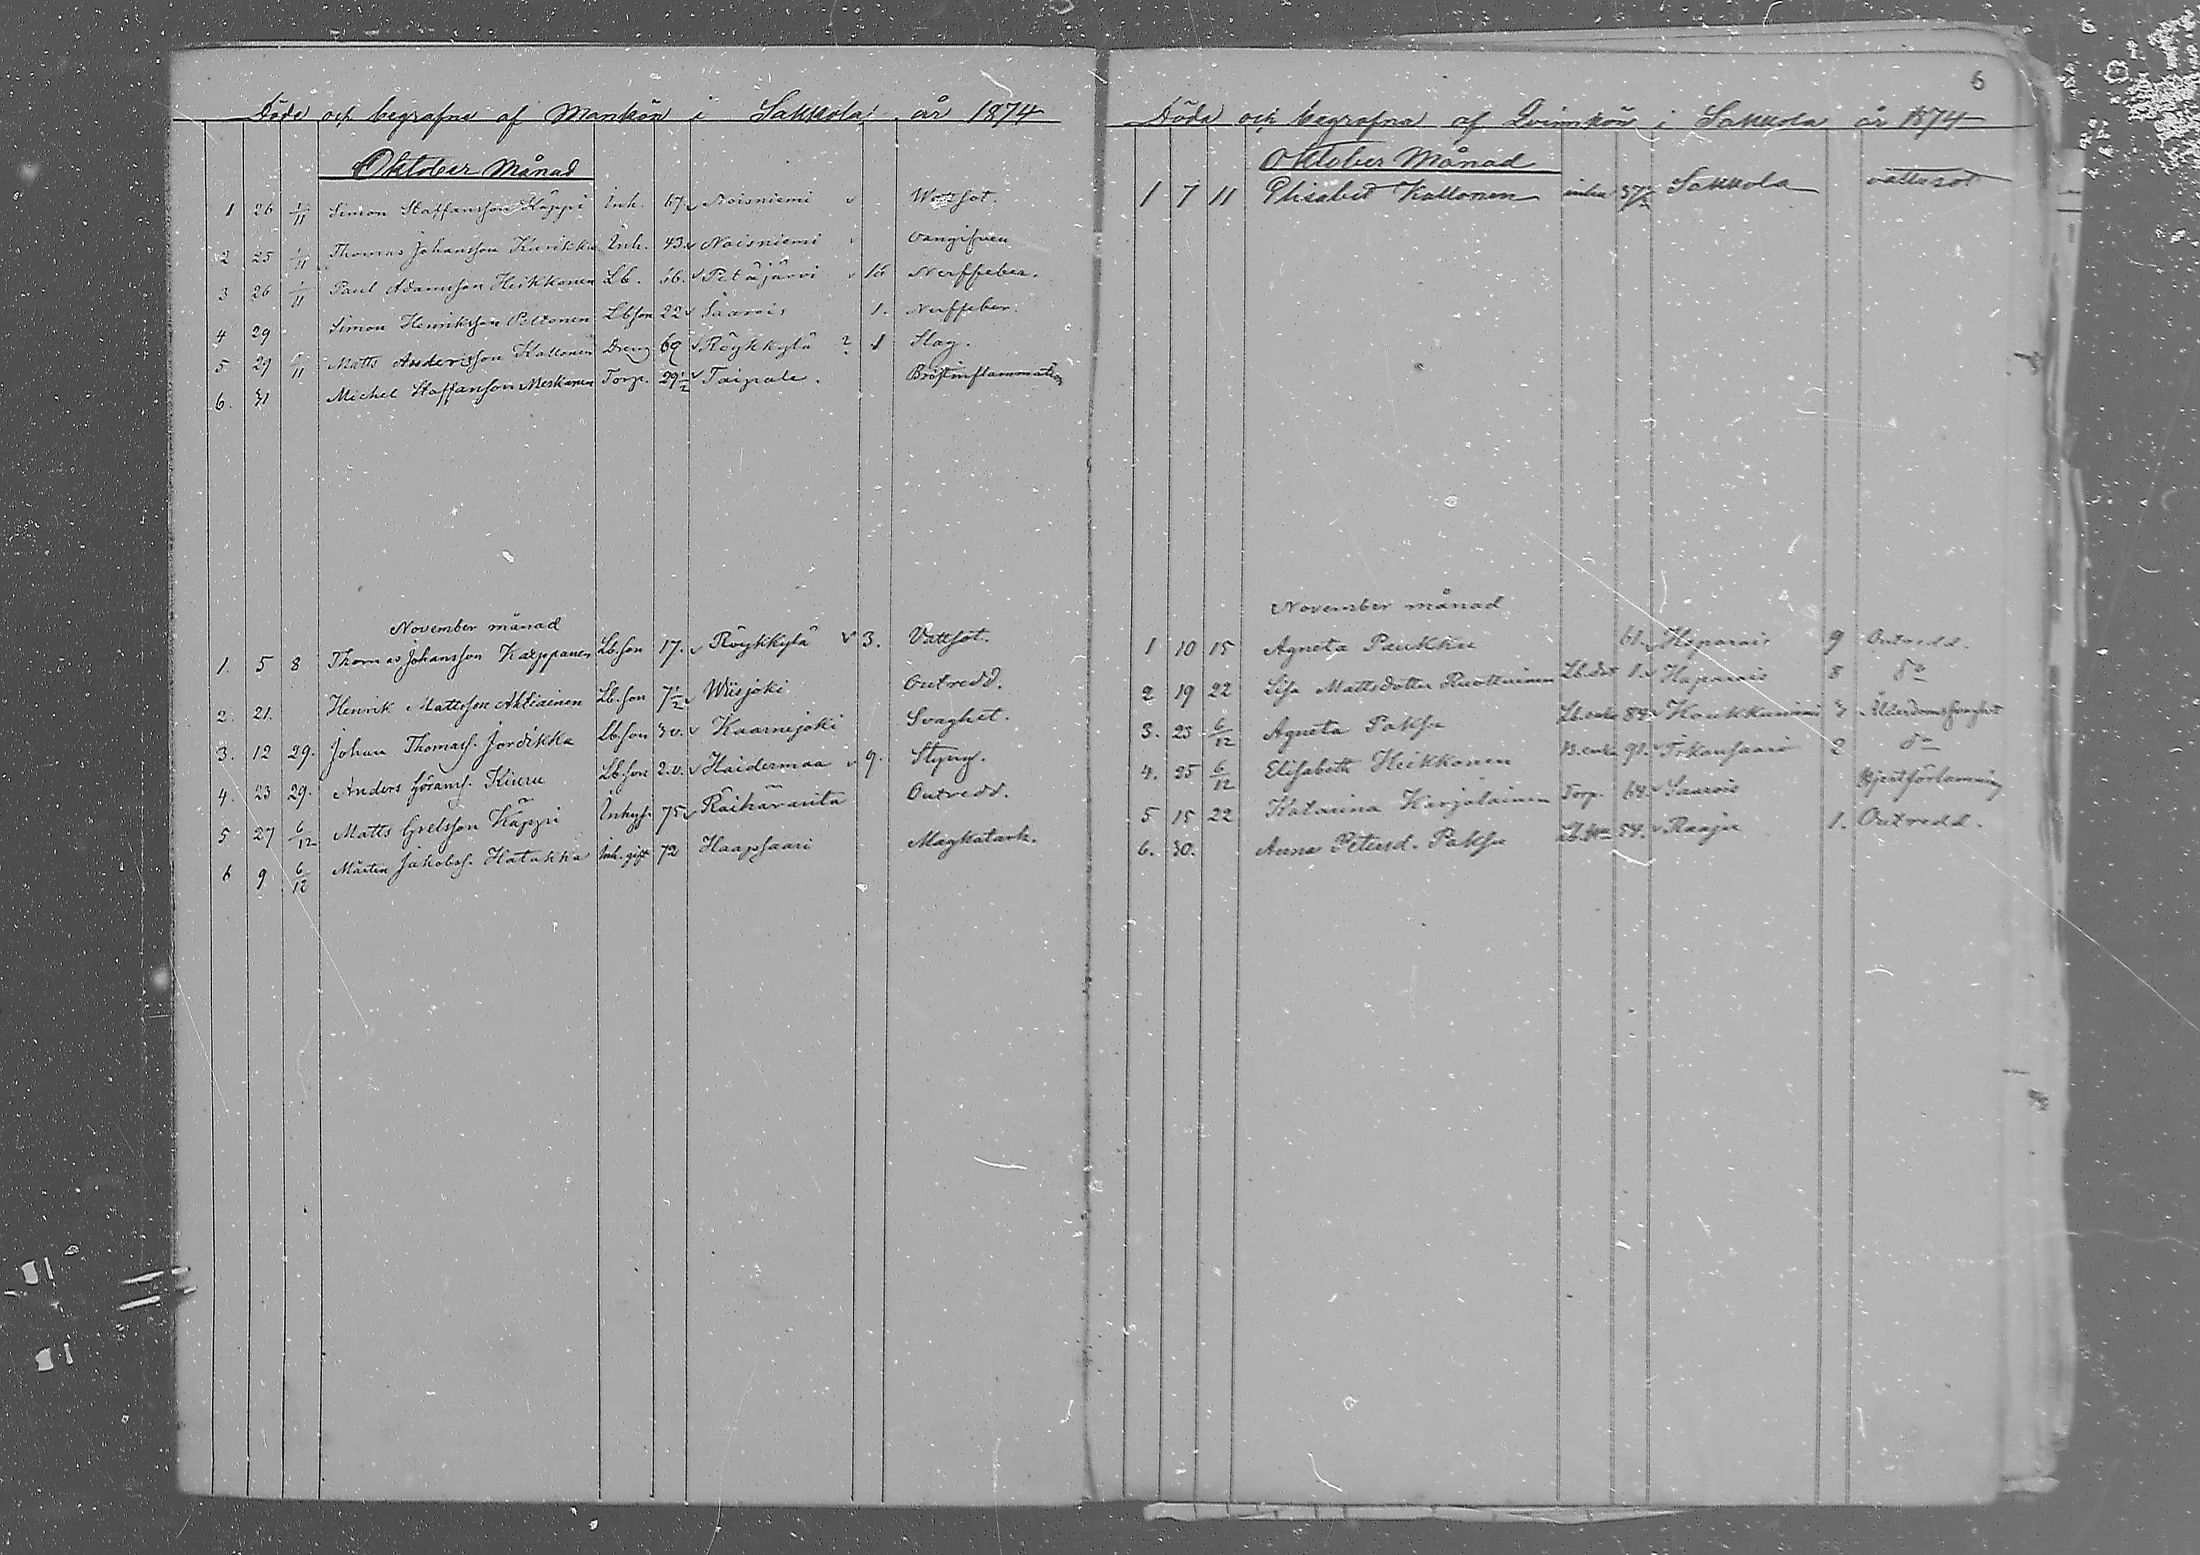 Döde och begrafne af Mankön i Sakkola år 1874
Oktober Månad
1 26 1/11 Simon Staffansson Käppi Inh. 67. Noisniemi Wattsot.
2 25 1/11 Thomas Johansson Kurikka Inh. 43. Noisniemi
3 26 1/11 Paul Adamsson Heikkonen Lb. 66. Petäjärvi 16 Nerffeber.
4 29 Simon Henriksson Peltonen Lbson 22 Saarois 1. Nerffeber.
5 29 Matts Andersson Kattonen Dreng 69 Röykkylä ? 1 Slag.
6. 31 Michel Staffansson Meskanen Torp. 29 1/2 Taipale. Bröstinflammation
November månad
1. 5 8 Thomas Johansson Karppanen Lb.son 17. Röykkylä 3. Vattsot.
2. 21. Henrik Mattsson Ahtiainen Lb.son 7 1/2 Wiisjoki Outredd.
3. 12 29. Johan Thomass. Jordikka Lb.son 3v. Kaarnejoki Svaghet.
4. 23 29. Anders Göranss. Kiuru Lb.son 2.v. Haidermaa 9.
5 27 6/12 Matts Grelsson Käppi Inhys. 75 Räihäranta Outredd.
6 9 6/12 Mårten Jakobss. Hatakka Inh. gift 72 Haapsaari Magkatarh.
6
Döda och begrafna af Qvinnkön i Sakkola år 1874
Oktober Månad
1 7 11 Elisabet Kattonen Sakkola vattusot
November månad
1 10 15 Agneta Paukku 61. Haparais 9 Outredd.
2 19 22 Lisa Mattsdotter Ruottinen Lb.dot 1. Haparais 8 do
3. 25 6/12 Agneta Paksu Lb.enka 84. Koukkuniemi 3 Ålderdomssvaghet
4. 25 6/12 Elisabeth Heikkonen 2 do
5 15 22 Katarina Karjalainen Torp. 64. Saarois Hjertförlamning
6. 30. Anna Petersd. Paksu 54. Raaju 1. Outredd.